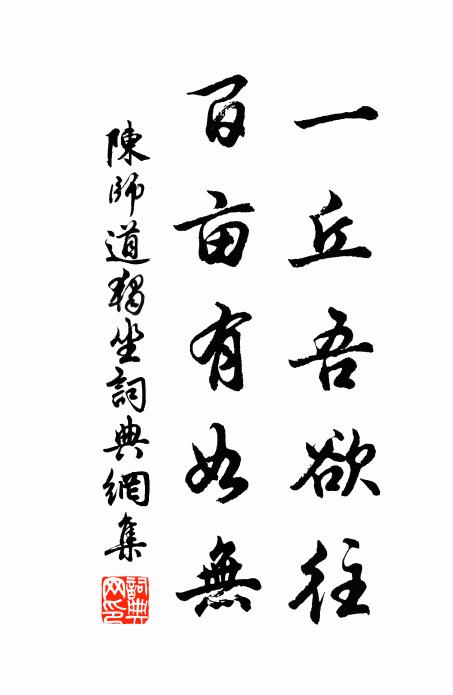 一丘吾欲往
百亩有如無
陳師道獨坐詞典網集
詞典网印